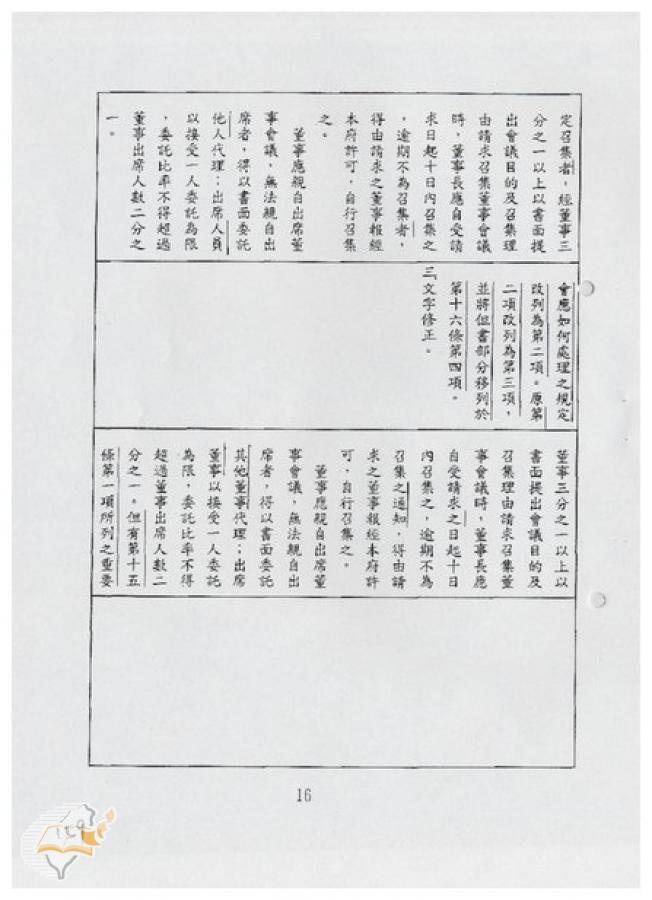 定召集者，經董事三
分之一以上以書面提
出會議目的及召集理
由請求召集董事會議
時，董事長應自受請
求日起十日內召集之
，逾期不為召集者，
得由請求之董事報經
本府許可，自行召集
之。
董事應親自出席董
事會議，無法親自出
席者，得以書面委託
他人代理；出席人員
以接受一人委託為限
，委託比率不得超過
董事出席人數二分之
一。
會應如何處理之規定
改列為第二項。原第
二項改列為第三項，
並將但書部分移列於
第十六條第四項。
三、文字修正。
董事三分之一以上以
書面提出會議目的及
召集理由請求召集董
事會議時，董事長應
自受請求之日起十日
內召集之，逾期不為
召集之通知，得由請
求之董事報經本府許
可，自行召集之。
董事應親自出席董
事會議，無法親自出
席者，得以書面委託
其他董事代理；出席
董事以接受一人委託
為限，委託比率不得
超過董事出席人數二
分之一。但有第十五
條第一項所列之重要
16
159